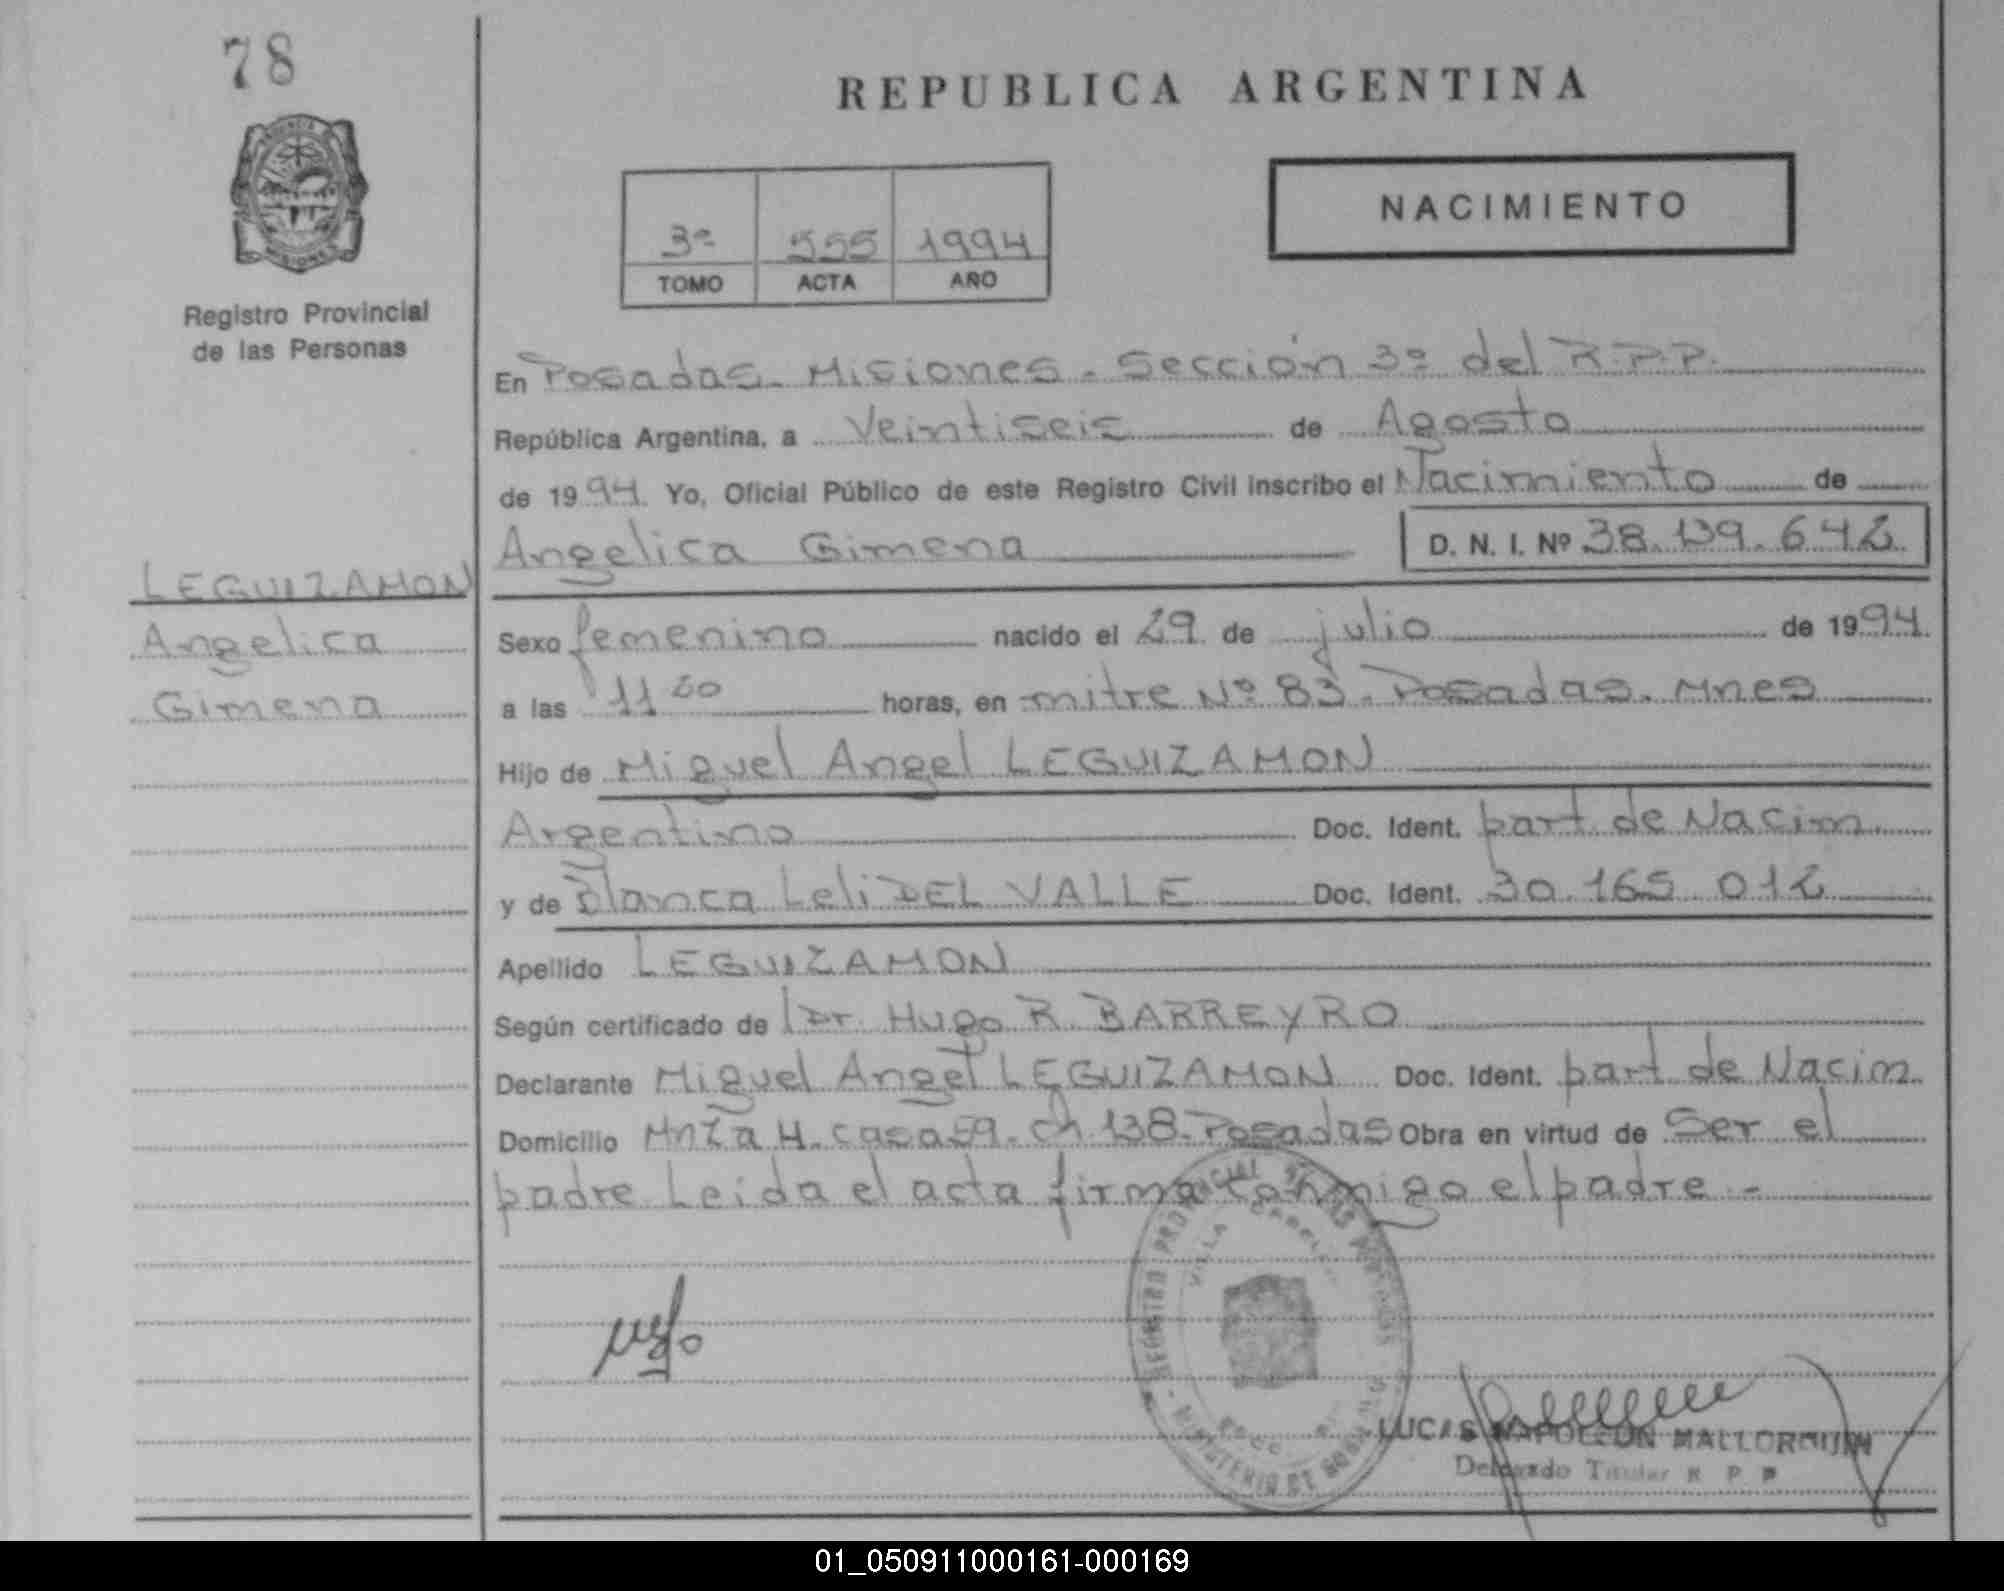 78
Registro Provincial
de las Personas
LEGUIZAMON
Angelica
Gimena
REPUBLICA ARGENTINA
3º 555 1994
TOMO ACTA AÑO
NACIMIENTO
En Posadas. Misiones. Sección 3º del R.P.P.
República Argentina, a Veintiseis de Agosto
de 1994. Yo, Oficial Público de este Registro Civil inscribo el Nacimiento de
Angelica Gimena D. N. I. Nº 38.139.642
Sexo femenino nacido el 29 de julio de 1994.
a las 11 horas, en mitre Nº 83. Posadas. Mnes
Hijo de Miguel Angel LEGUIZAMON
Argentino Doc. Ident. part de Nacim
y de Blanca Leli DEL VALLE Doc. Ident. 30.165.012
Apellido LEGUIZAMON
Según certificado de Dr. Hugo R. BARREYRO
Declarante Miguel Angel LEGUIZAMON Doc. Ident. part de Nacim
Domicilio Mnza H. casa 59. ch 138. Posadas Obra en virtud de Ser el
padre Leida el acta firma conmigo el padre.-
REGISTRO PROVINCIAL DE LAS PERSONAS
VILLA
MINISTERIO DE GOBIERNO
LUCAS NAPOLEON MALLORQUIN
Delegado Titular R P P
01_050911000161-000169